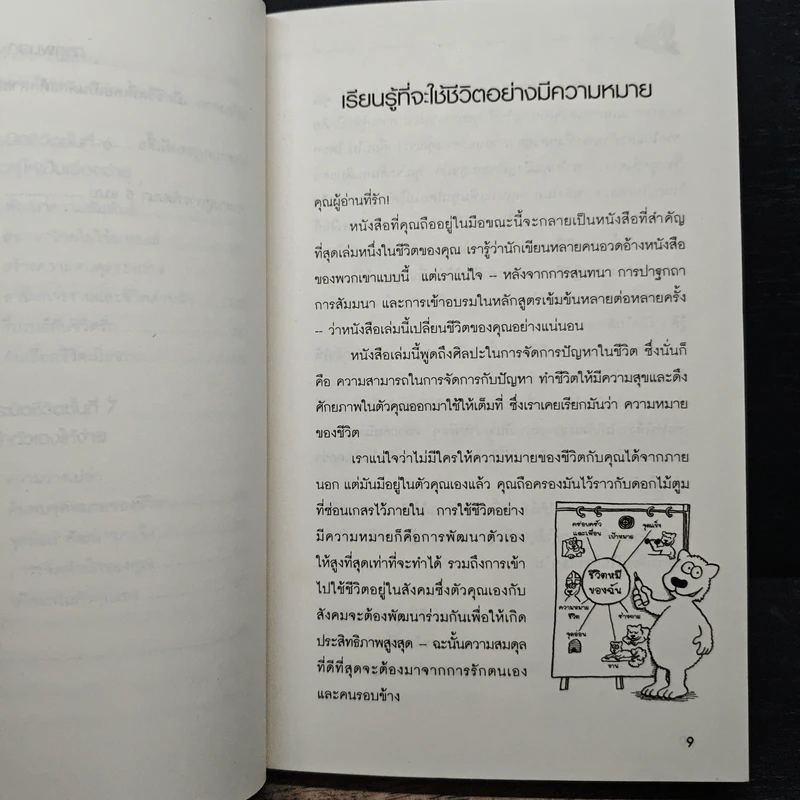 เรียนรู้ที่จะใช้ชีวิตอย่างมีความหมาย
คุณผู้อ่านที่รัก!
หนังสือที่คุณถืออยู่ในมือขณะนี้จะกลายเป็นหนังสือที่สำคัญ
ที่สุดเล่มหนึ่งในชีวิตของคุณ เรารู้ว่านักเขียนหลายคนอวดอ้างหนังสือ
ของพวกเขาแบบนี้ แต่เราแน่ใจ – หลังจากการสนทนา การปาฐกถา
การสัมมนา และการเข้าอบรมในหลักสูตรเข้มข้นหลายต่อหลายครั้ง
– ว่าหนังสือเล่มนี้เปลี่ยนชีวิตของคุณอย่างแน่นอน
หนังสือเล่มนี้พูดถึงศิลปะในการจัดการปัญหาในชีวิต ซึ่งนั่นก็
คือ ความสามารถในการจัดการกับปัญหา ทำชีวิตให้มีความสุขและดึง
ศักยภาพในตัวคุณออกมาใช้ให้เต็มที่ ซึ่งเราเคยเรียกมันว่า ความหมาย
ของชีวิต
เราแน่ใจว่าไม่มีใครให้ความหมายของชีวิตกับคุณได้จากภาย
นอก แต่มันมีอยู่ในตัวคุณเองแล้ว คุณถือครองมันไว้ราวกับดอกไม้ตูม
ที่ซ่อนเกสรไว้ภายใน การใช้ชีวิตอย่าง
มีความหมายก็คือการพัฒนาตัวเอง
ให้สูงที่สุดเท่าที่จะทำได้ รวมถึงการเข้า
ไปใช้ชีวิตอยู่ในสังคมซึ่งตัวคุณเองกับ
สังคมจะต้องพัฒนาร่วมกันเพื่อให้เกิด
ประสิทธิภาพสูงสุด – ฉะนั้นความสมดุล
ที่ดีที่สุดจะต้องมาจากการรักตนเอง
และคนรอบข้าง
ครอบครัว
และเพื่อน
เป้าหมาย
จุดแข็ง
ชีวิตหมี
ของฉัน
ความหมาย
ชีวิต
ร่างกาย
จุดอ่อน
งาน
9